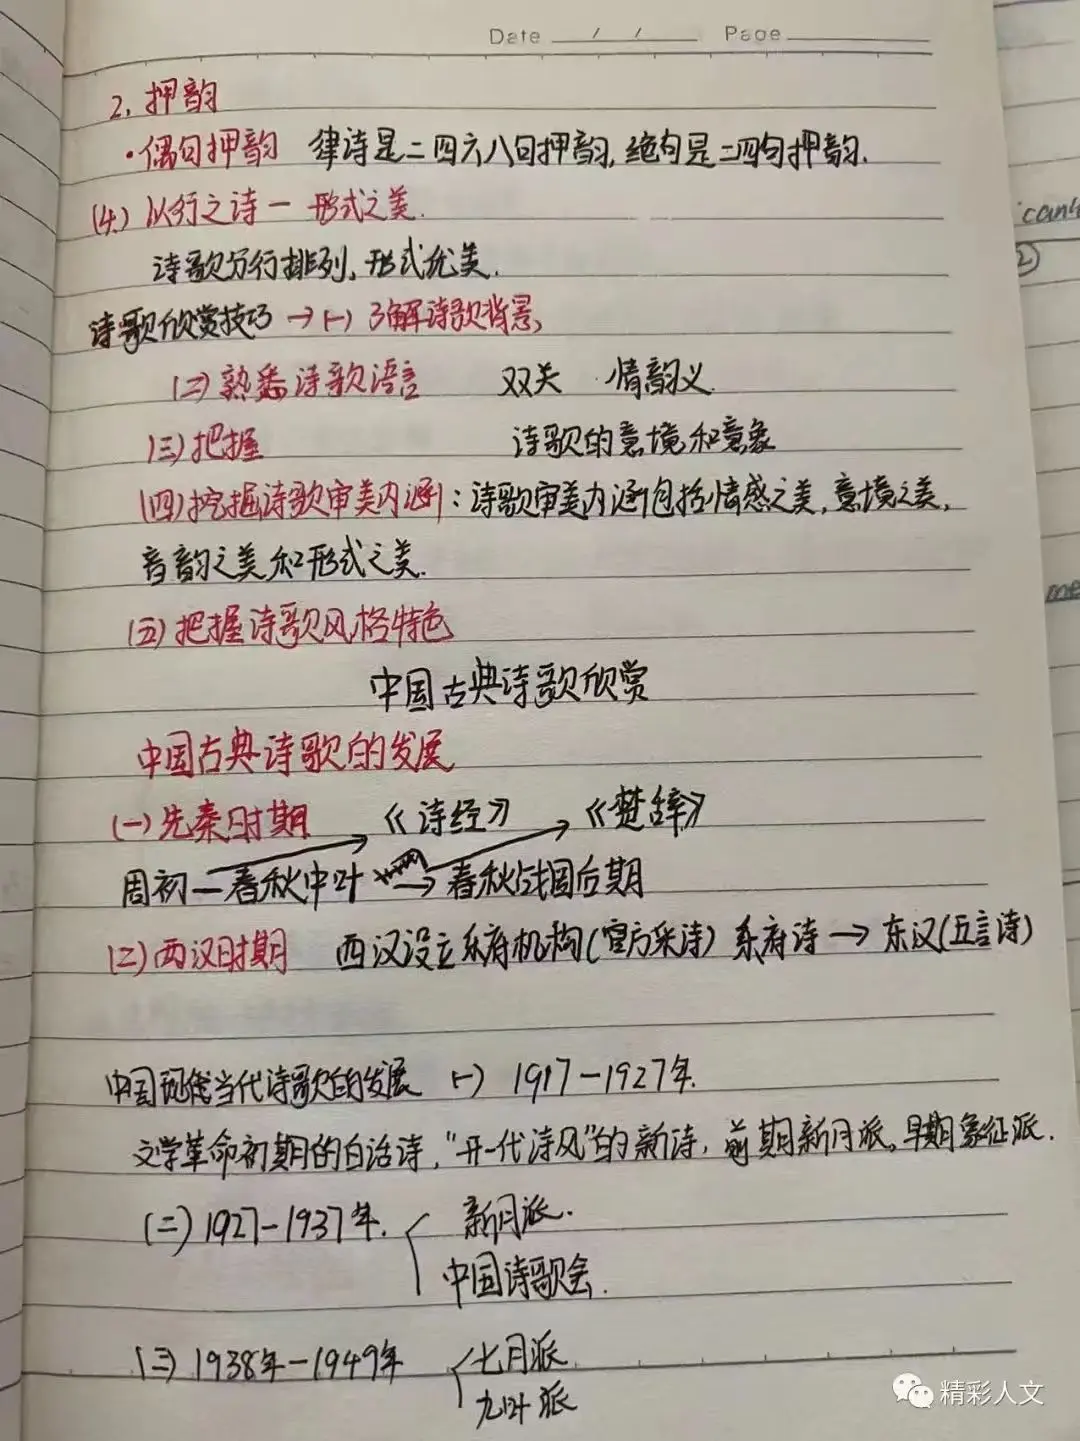 Date / / Page
2、押韵
·偶句押韵 律诗是二四六八句押韵,绝句是二四句押韵.
(4.) 以行之诗一 形式之美.
诗歌分行排列,形式优美.
诗歌欣赏技巧→(一)了解诗歌背景,
(二)熟悉诗歌语言 双关 ·情韵义
(三)把握 诗歌的意境和意象
(四)挖掘诗歌审美内涵:诗歌审美内涵包括情感之美,意境之美,
音韵之美和形式之美.
(五)把握诗歌风格特色
中国古典诗歌欣赏
中国古典诗歌的发展
(一)先秦时期 《诗经》 《楚辞》
周初—春秋中叶 → 春秋战国后期
(二)两汉时期 西汉设立乐府机构(官方采诗) 乐府诗→东汉(五言诗)
中国现代当代诗歌的发展 (一) 1917-1927年.
文学革命初期的白话诗,"开一代诗风"的新诗,前期新月派。早期象征派.
(二)1927-1937年. 新月派.
中国诗歌会.
(三)1938年-1949年 七月派
九叶派
精彩人文
can
2)
me